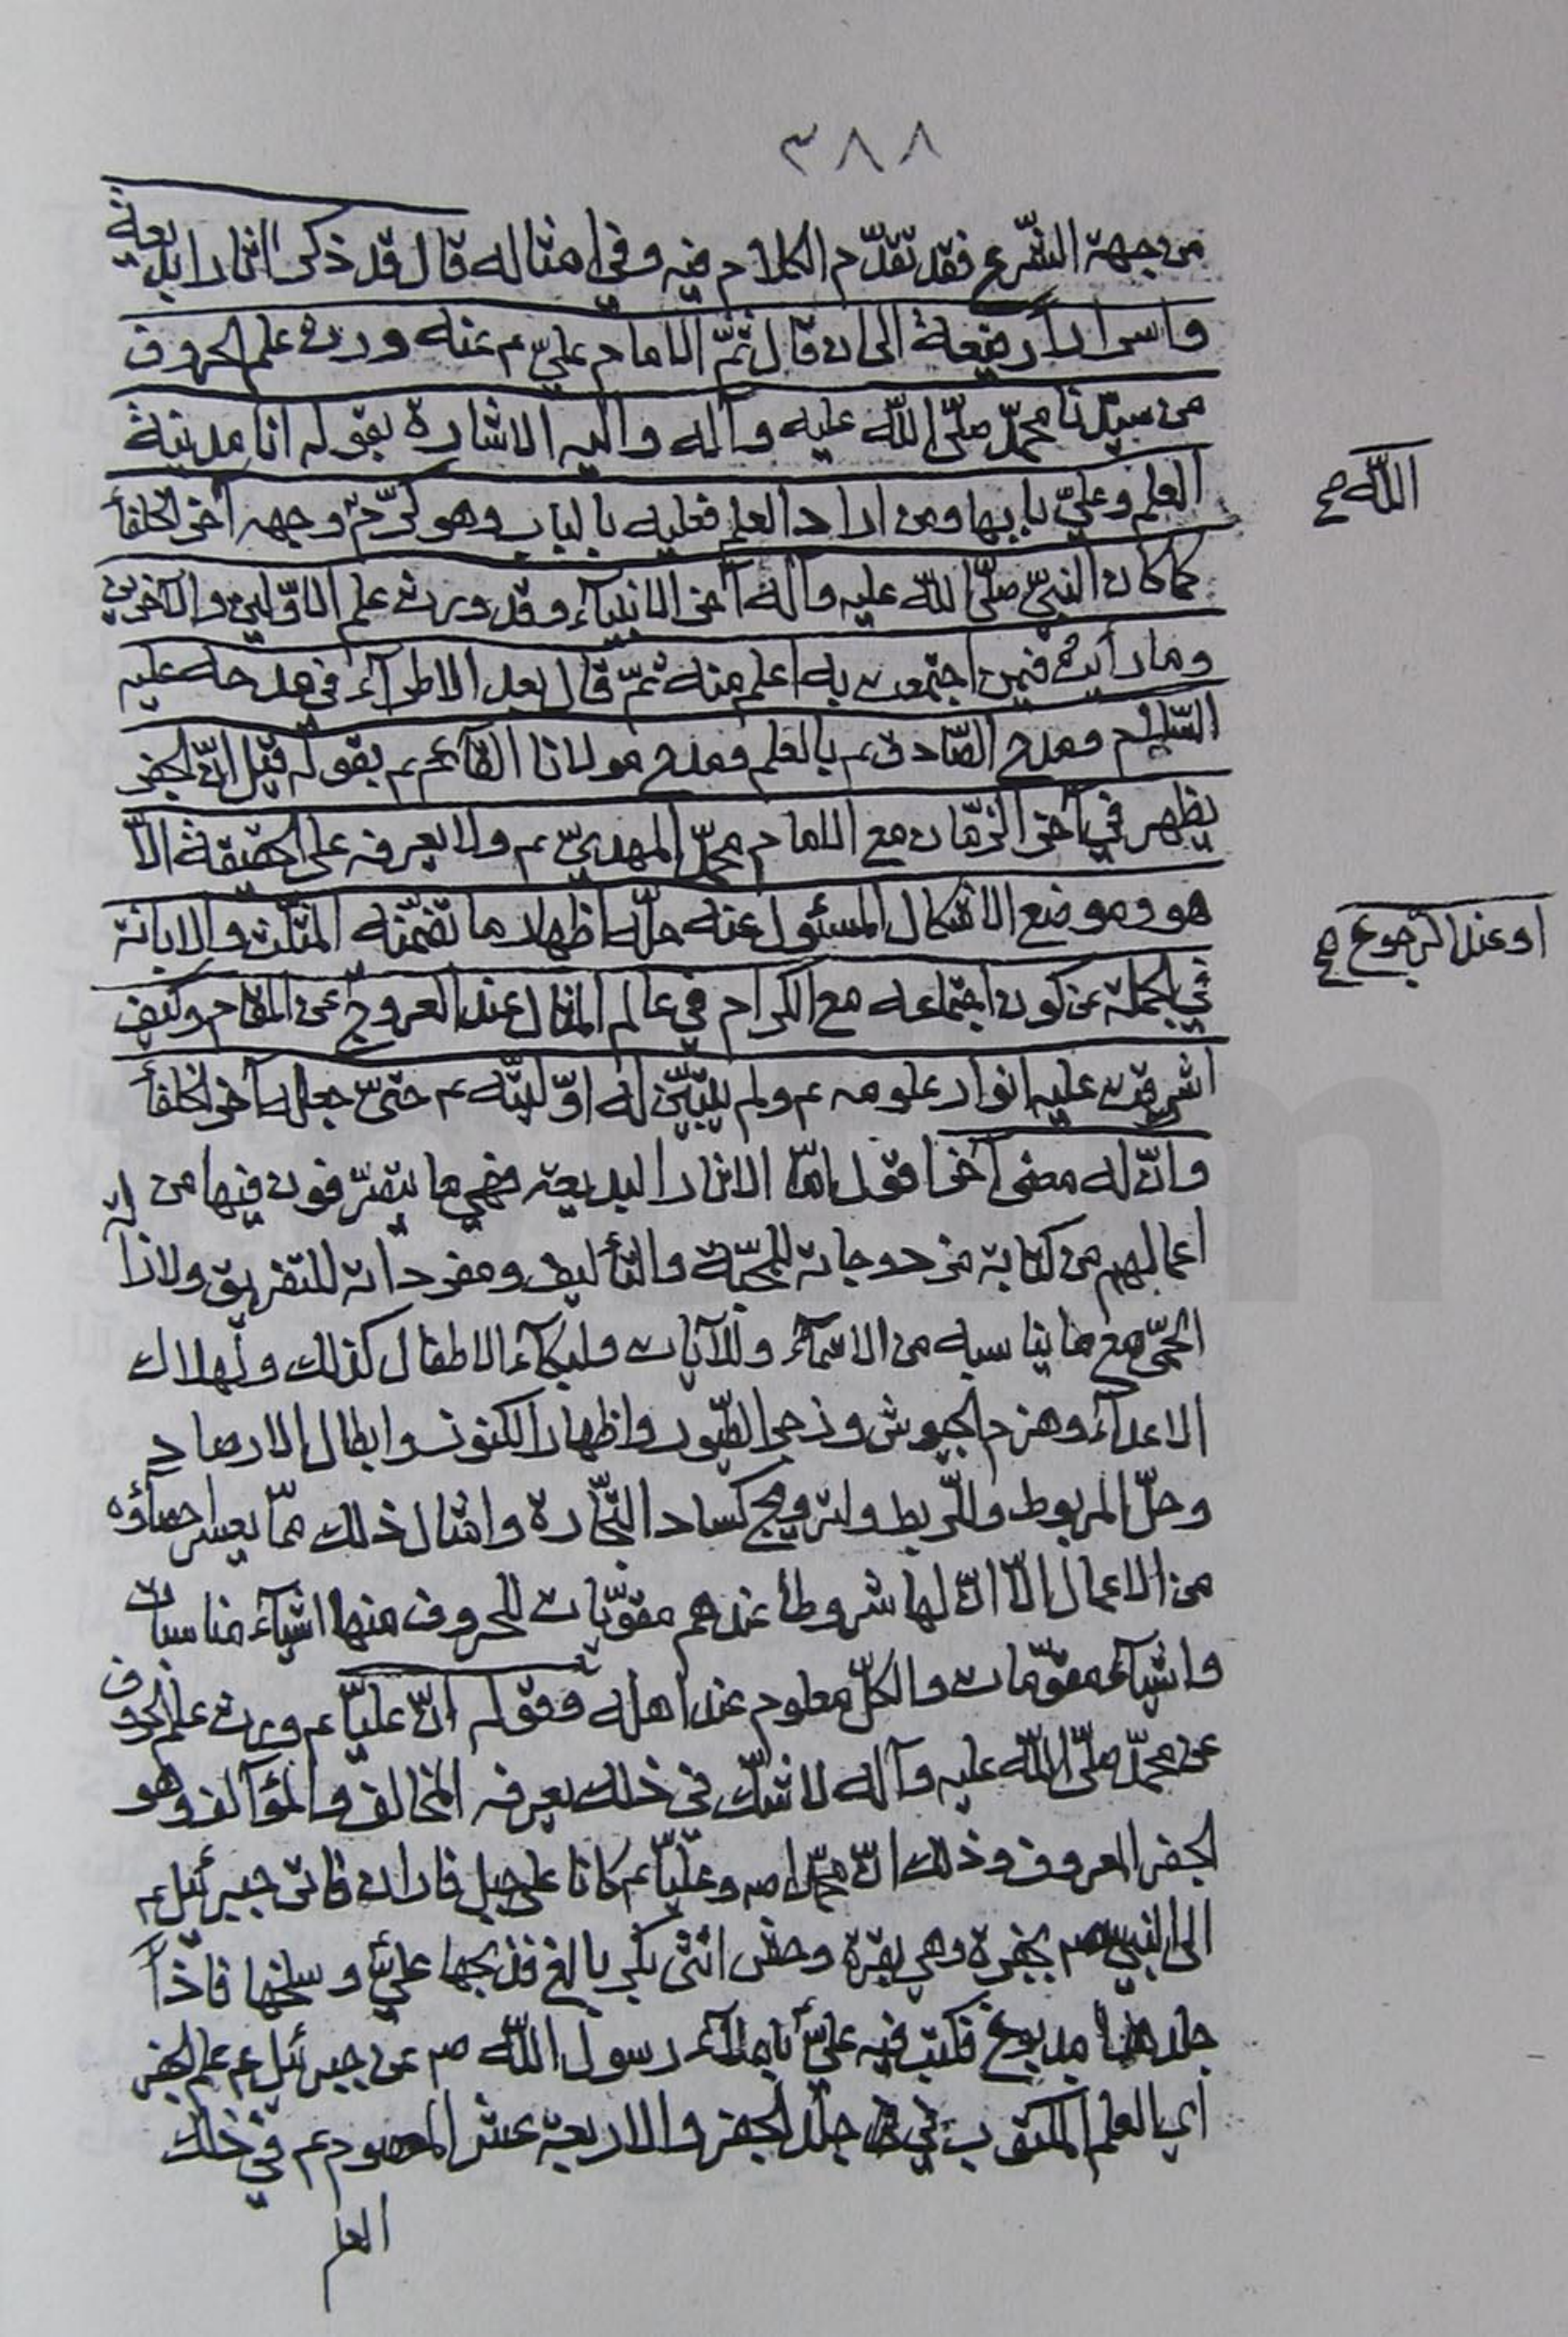 ٣٨٨
من جهة الشّرع فقد تقدّم الكلام فيه وفي امثاله قال قد ذكر اثارا بديعة
واسرارا رفيعة الى ان قال ثمّ الامام عليّ ع عنه ورث علم الحروف
من سيّدنا محمّد صلّى اللّه عليه وآله واليه الاشارة بقوله انا مدينة
العلم وعليّ بابها ومن اراد العلم فعليه بالباب وهو كرّم وجهه آخر الخلفأ
اللّه صح
كما كان النبيّ صلّى اللّه عليه وآله آخر الانبيآء وقد ورث علم الاوّلين والآخرين
وما رأيت فيمن اجتمعت به اعلم منه ثمّ قال بعد الاطرآء في مدحه عليه
السّلام ومدح الصّادق ع بالعلم ومدح مولانا القآئم ع بقوله قيل انّ الجفر
يظهر في آخر الزّمان مع الامام محمّد المهديّ ع ولا يعرفه على الحقيقة الّا
هو وموضع الاشكال المسئول عنه حلّه اظهار ما تضمّنه المثلّث والابانة
في الجملة عن كون اجتماعه مع الكرام في عالم المثال عند العروج عن المقام وكيف
او عند الرجوع صح
اشرقت عليه انوار علومه ع ولم يتبيّن له اوّليّته ع حتّى جعله آخر الخلفأ
وانّ له معنى آخر اقول امّا الاثار البديعة فهي ما يتصرّفون فيها من
اعمالهم من كتابة مزدوجاته للمحبّة والتأليف ومفرداته للتفريق ولازالة
الحمّى مع ما يناسبه من الاسمآء والآيات ولبكآء الاطفال كذلك ولهلاك
الاعدآء وهزم الجيوش وزجر الطّيور واظهار الكنوز وابطال الارصاد
وحلّ المربوط والرّبط ولترويج كساد التّجارة وامثال ذلك ممّا يعسر احصآؤه
من الاعمال الّا انّ لها شروطا عندهم مقوّيات للحروف منها اشيآء مناسبات
واشيآء مقوّمات والكلّ معلوم عند اهله وقوله انّ عليّا ع ورث علم الحروف
عن محمّد صلّى اللّه عليه وآله لا شكّ في ذلك يعرفه المخالف والمؤآلف وهو
الجفر المعروف وذلك انّ محمّدا ص وعليّا ع كانا على جبل فاران فاتى جبرئيل ع
الى النبيّ ص بجفرة وهي بقرة وحش انثى بكر بالغ فذبحها عليّ وسلخها فاذا
جلدها مدبوغ فكتب فيه عليّ باملآء رسول اللّه ص عن جبرئيل ع علم الجفر
اي العلم المكتوب في جلد الجفر والاربعة عشر المعصوم ع في ذلك
العلم